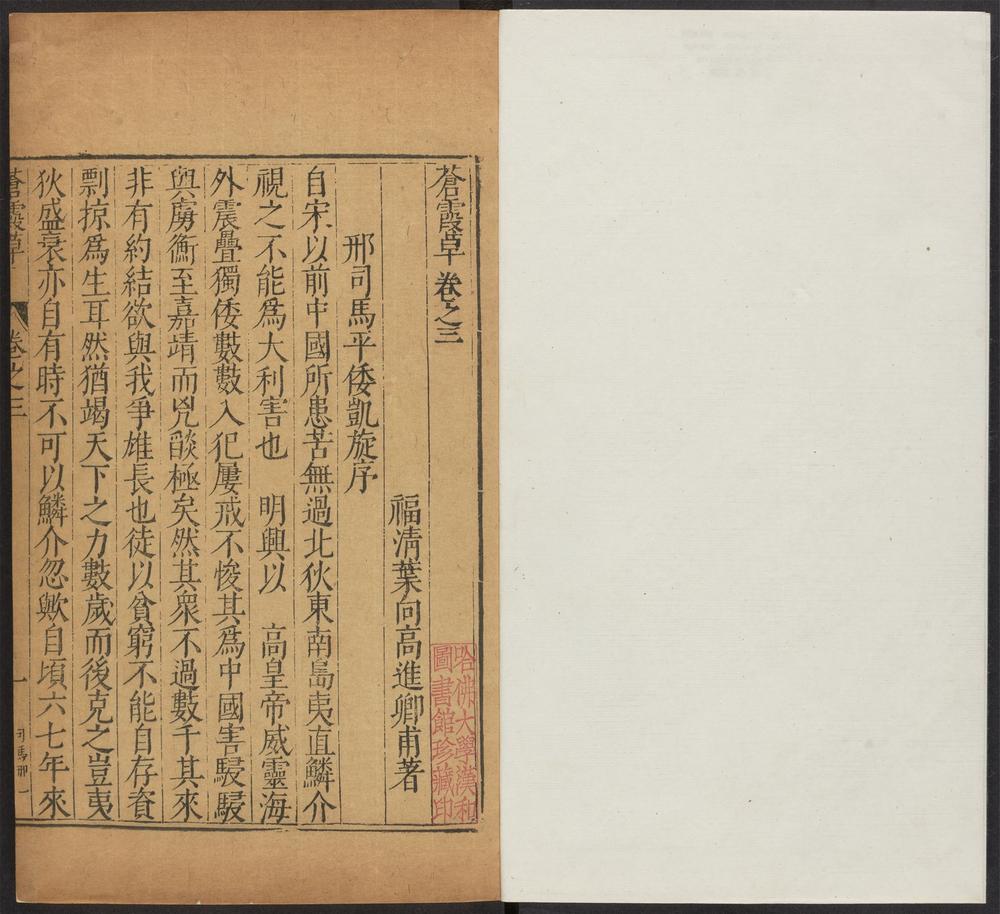 蒼霞草卷之三
福清葉向高進卿甫著
邢司馬平倭凱旋序
自宋以前中國所患苦無過北狄東南島夷直鱗介
視之不能爲大利害也　明興以　高皇帝威靈海
外震疊獨倭數數入犯屢戒不悛其爲中國害駸駸
與虜衡至嘉靖而兇燄極矣然其衆不過數千其來
非有約結欲與我爭雄長也徒以貧窮不能自存資
剽掠爲生耳然猶竭天下之力數歲而後克之豈夷
狄盛衰亦自有時不可以鱗介忽歟自頃六七年來
蒼霞草
卷之三
一
司馬邢一
哈佛大學漢和
圖書館珍藏印